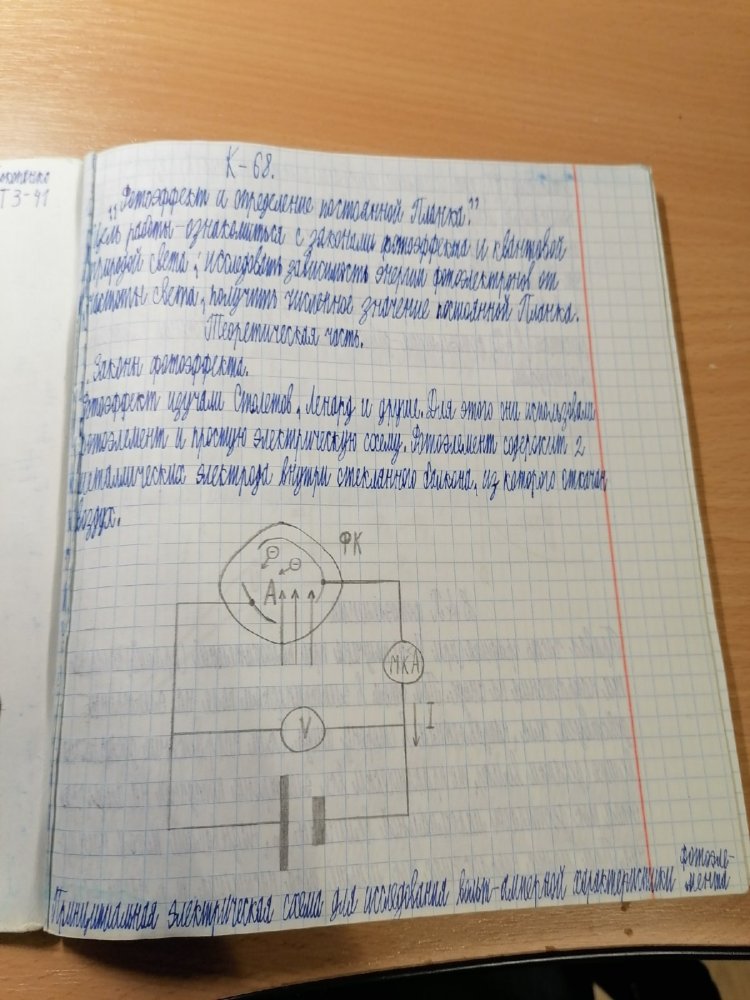 Т 3-41
К-68.
„Фотоэффект и определение постоянной Планка”
Цель работы-ознакомиться с законами фотоэффекта и квантовой
природой света; исследовать зависимость энергии фотоэлектронов от
частоты света, получить численное значение постоянной Планка.
Теоретическая часть.
Законы фотоэффекта.
Фотоэффект изучали Столетов, Ленард и другие. Для этого они использовали
фотоэлемент и простую электрическую схему. Фотоэлемент содержит 2
металлических электрода внутри стеклянного балкона, из которого откачан
воздух.
ФК
А
мкА
V
I
Принципиальная электрическая схема для исследования вольт-амперной характеристики фотоэле-
мента